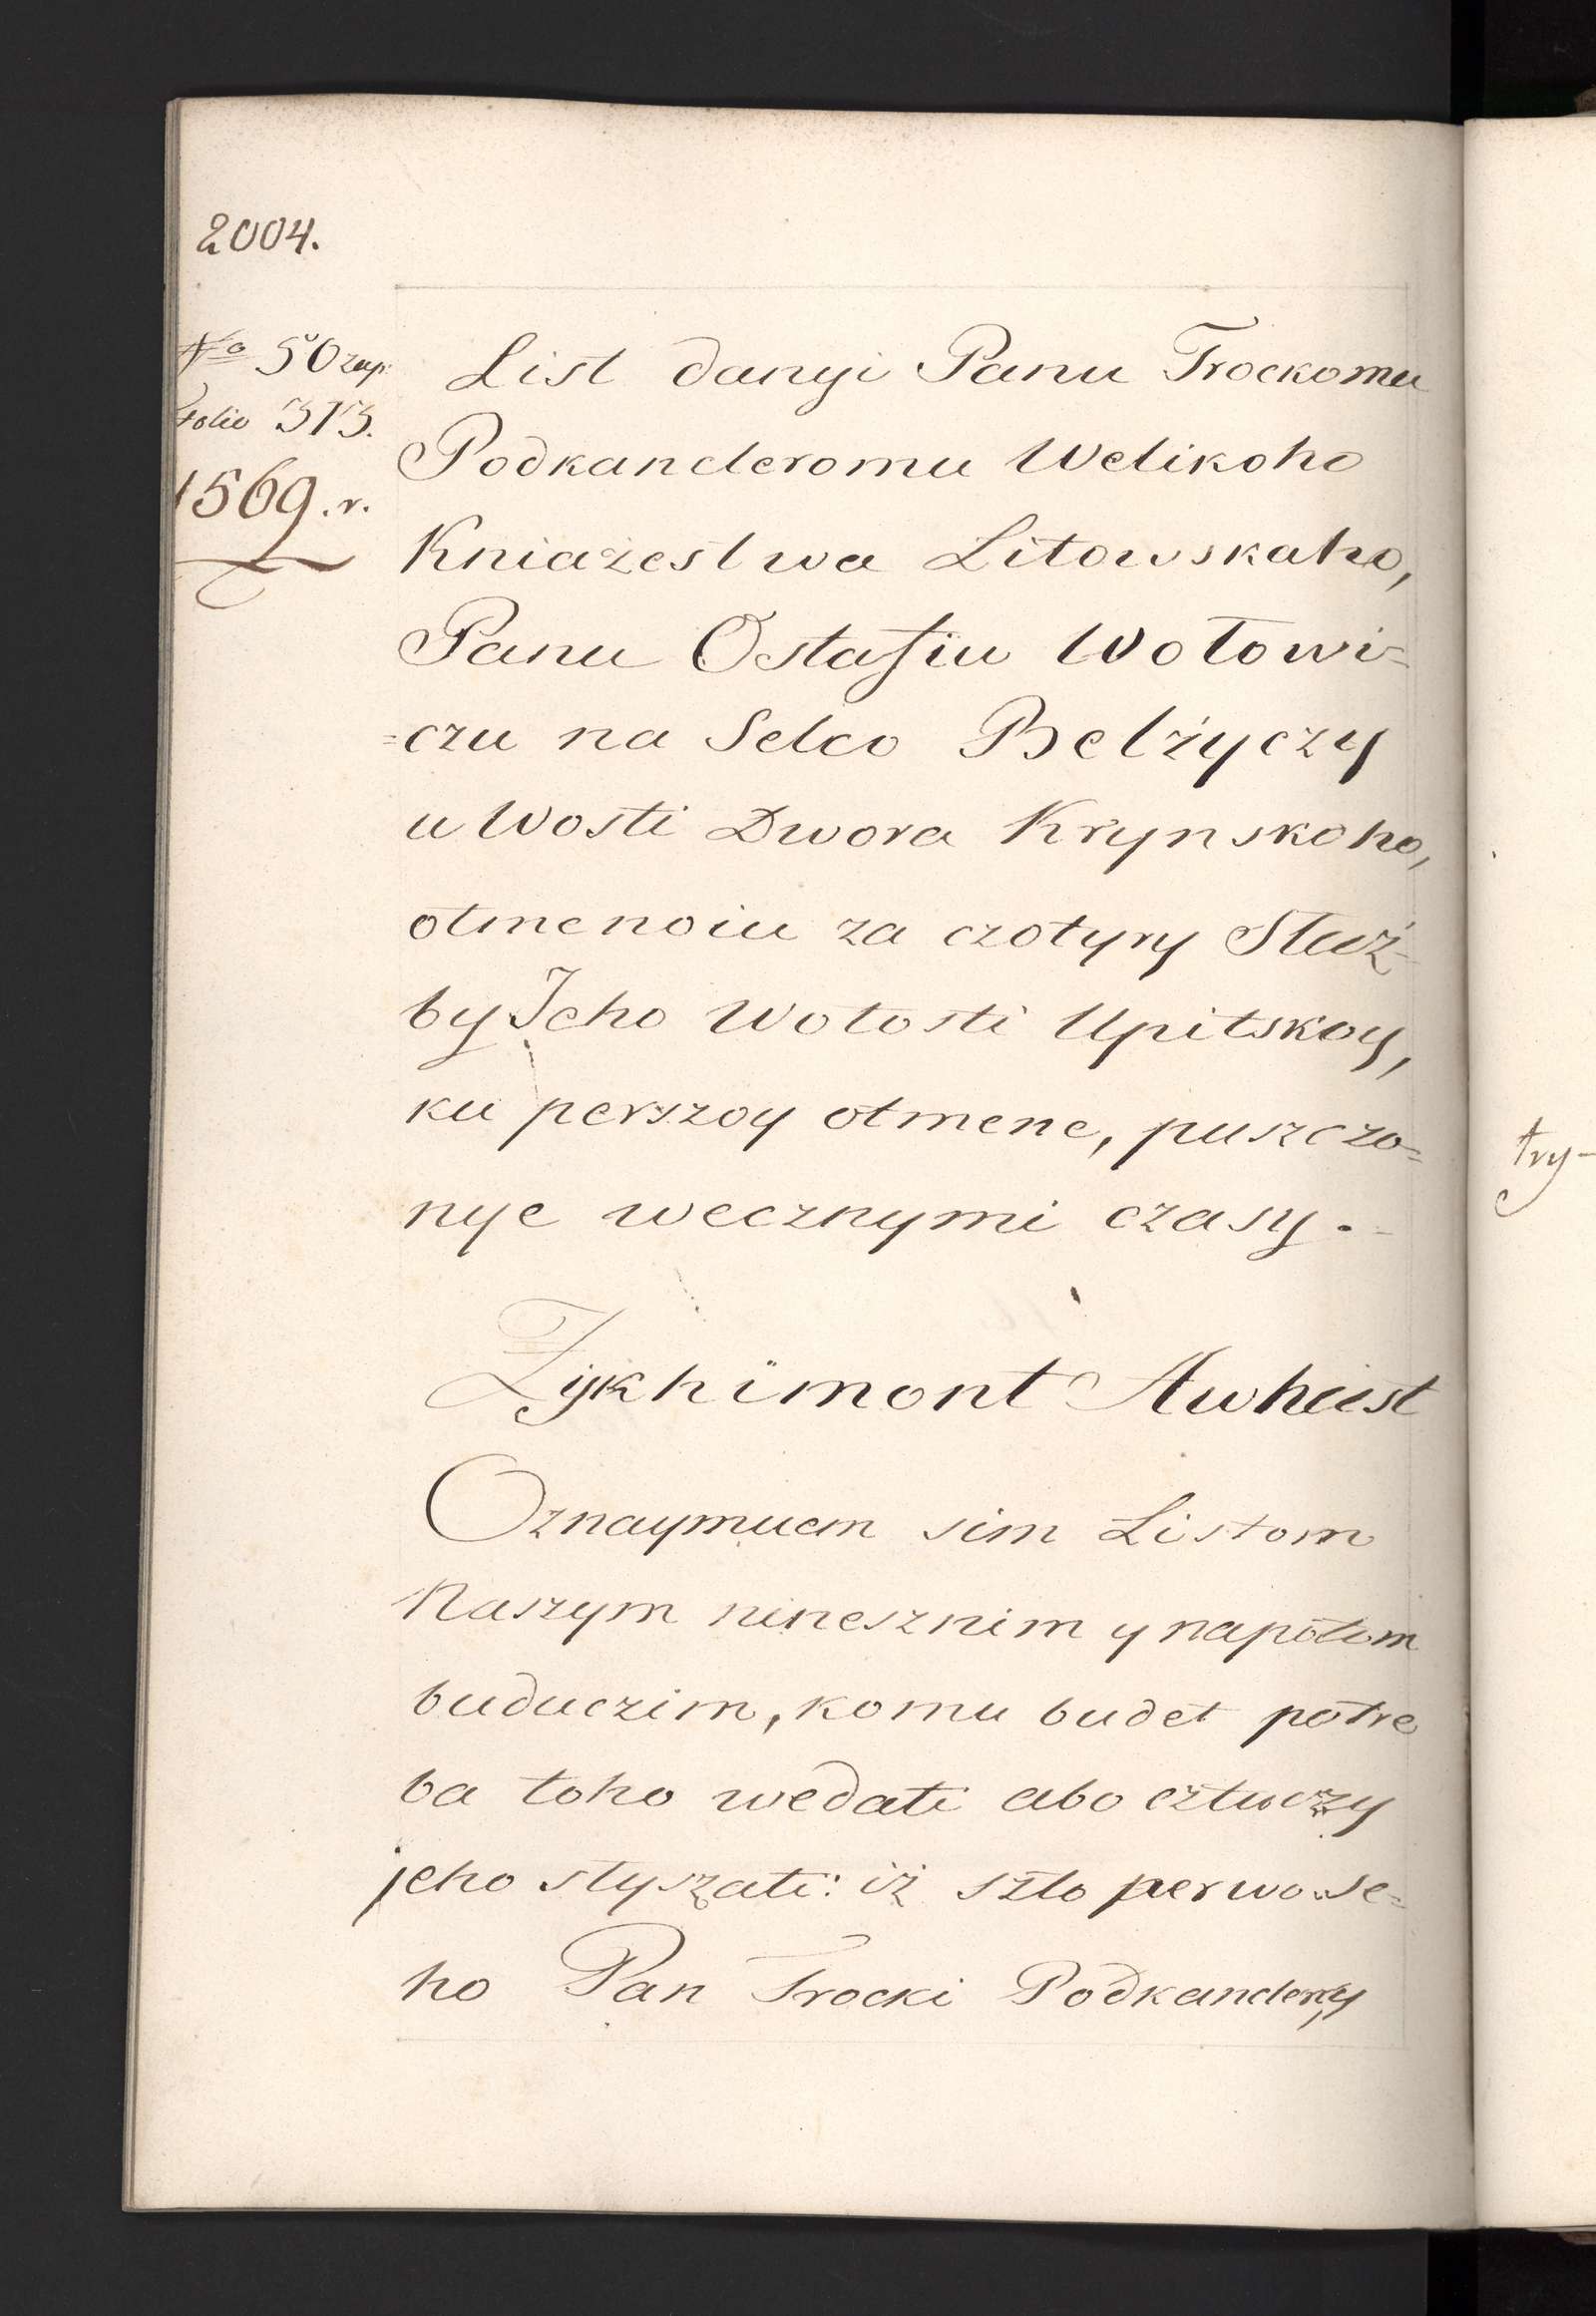 2004.
No 50 zap.
Folio 313.
1569. r.
List danyi Panu Trockomu
Podkancleromu Welikoho
Kniażestwa Litowskaho,
Panu Ostafiu Wołowi=
=czu na Selco Belżyczy
u Wosti Dwora Krynskoho,
otmenoiu za czotyry Służ-
by Jeho Wołosti Upitskoy,
ku perszoy otmene, puszczo=
nye wecznymi czasy.
Zykhimont Awhust
Oznaymuem sim Listom
Naszym ninesznim y napotom
buduczim, komu budet potre
ba toho wedati abo cztuczy
jeho słyszati: iż szto perwo se=
ho Pan Trocki Podkanclery
try-